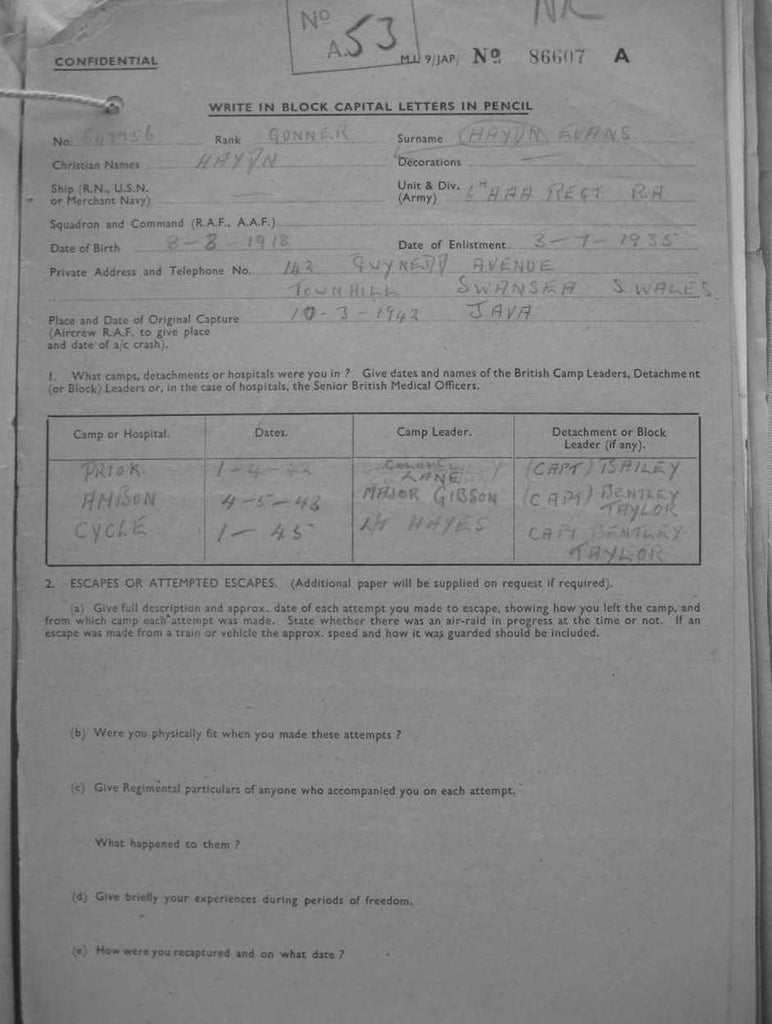 No A.53 NR
CONFIDENTIAL M.I. 9/JAP/ No 86607 A
WRITE IN BLOCK CAPITAL LETTERS IN PENCIL
No. Rank GUNNER Surname (HAYDN) EVANS
Christian Names HAYDN Decorations —
Ship (R.N., U.S.N. or Merchant Navy) — Unit & Div. (Army) HAA REGT RA
Squadron and Command (R.A.F., A.A.F.)
Date of Birth 8-8-1918 Date of Enlistment 3-7-1935
Private Address and Telephone No. 142 GWYNEDD AVENUE
TOWNHILL SWANSEA S WALES
Place and Date of Original Capture 10-3-1942 JAVA
(Aircrew R.A.F. to give place
and date of a/c crash).
1. What camps, detachments or hospitals were you in ? Give dates and names of the British Camp Leaders, Detachment
(or Block) Leaders or, in the case of hospitals, the Senior British Medical Officers.
Camp or Hospital. Dates. Camp Leader. Detachment or Block
Leader (if any).
PRIOK 1-4-42 COLONEL LANE (CAPT) BAILEY
AMBON 4-5-43 MAJOR GIBSON (CAPT) BENTLEY
TAYLOR
CYCLE 1-45 Lt HAYES CAPT BENTLEY
TAYLOR
2. ESCAPES OR ATTEMPTED ESCAPES. (Additional paper will be supplied on request if required).
(a) Give full description and approx. date of each attempt you made to escape, showing how you left the camp, and
from which camp each attempt was made. State whether there was an air-raid in progress at the time or not. If an
escape was made from a train or vehicle the approx. speed and how it was guarded should be included.
(b) Were you physically fit when you made these attempts ?
(c) Give Regimental particulars of anyone who accompanied you on each attempt.
What happened to them ?
(d) Give briefly your experiences during periods of freedom.
(e) How were you recaptured and on what date ?